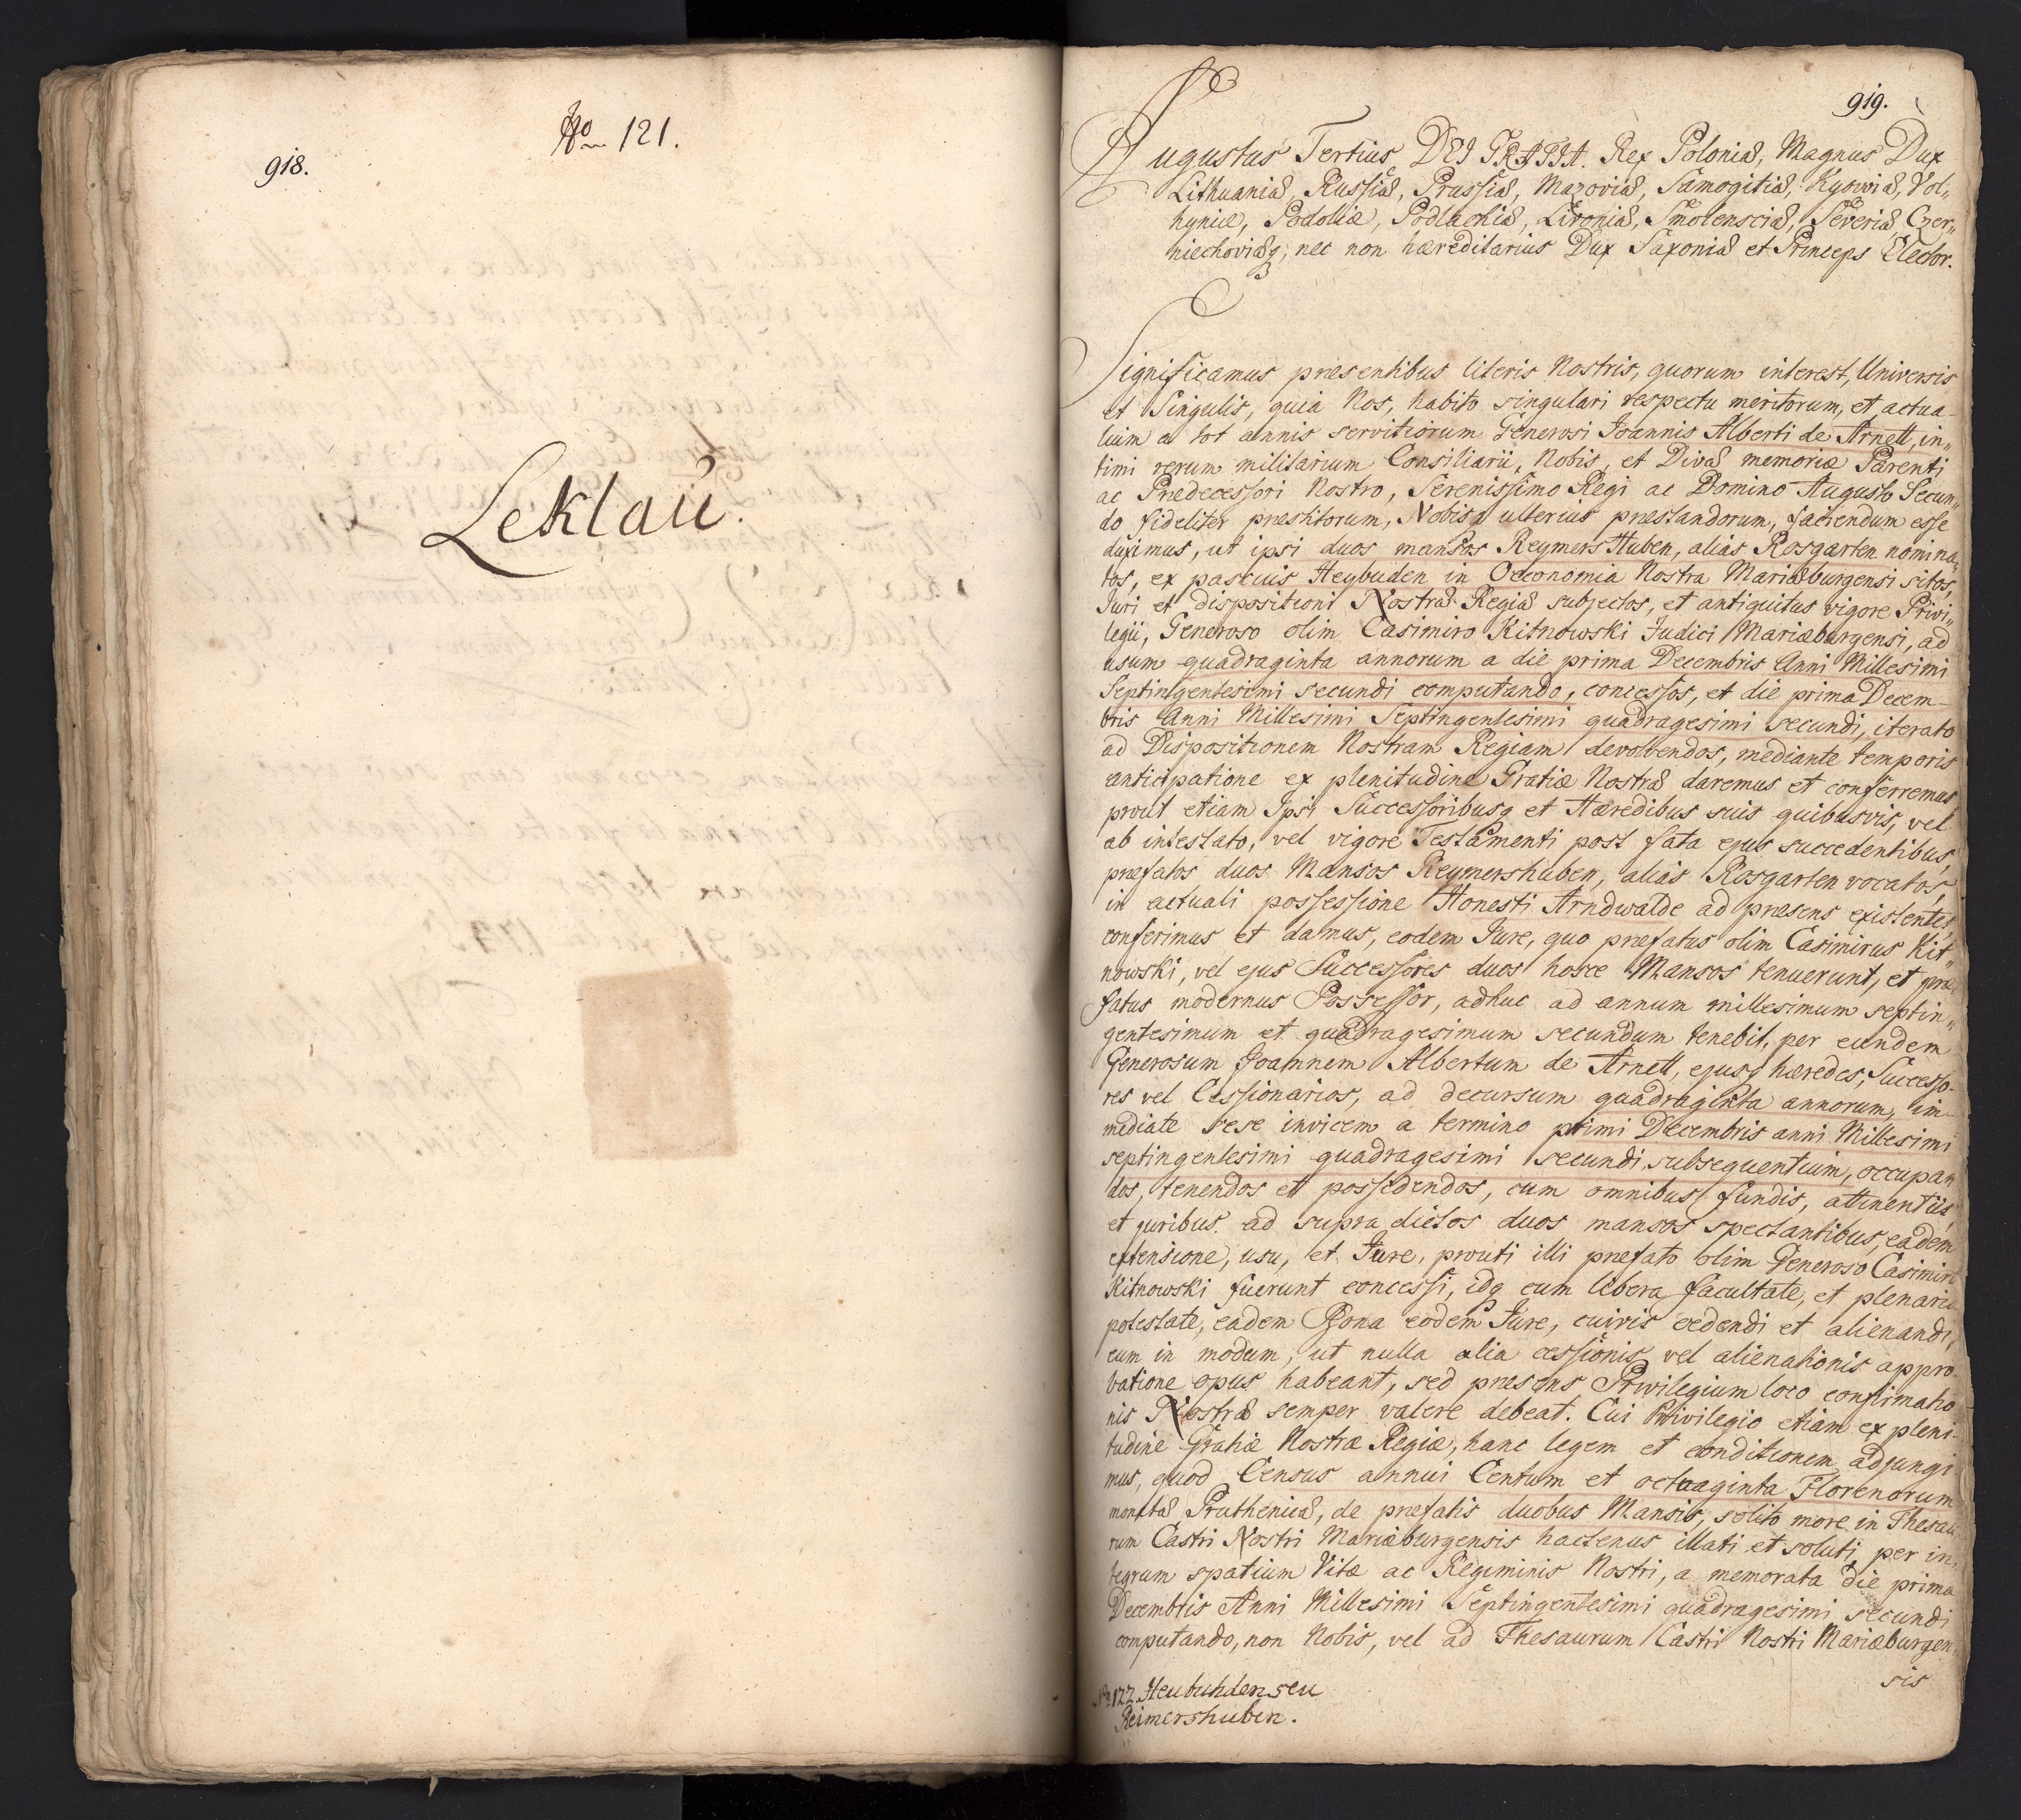 918.
No 121.
Leklau.
919.
Augustus Tertius DEI GRATIA. Rex Poloniæ, Magnus Dux
Lithuaniæ, Russiæ, Prussiæ, Mazoviæ, Samogitiæ, Kyoviæ, Vol„
hyniæ, Podoliæ, Podlachiæ, Livoniæ, Smolensciæ, Severiæ, Czer„
niechoviæq; nec non hæreditarius Dux Saxoniæ et Princeps Elector.
Significamus præsentibus literis Nostris, quorum interest, Universis
et Singulis, quia Nos, habito singulari respectu meritorum, et actua-
lium a tot annis servitiorum Generosi Joannis Alberti de Arnett, in„
timi rerum militarium Consiliarii, Nobis, et Divæ memoriæ Parenti
ac Prædecessori Nostro, Serenissimo Regi ac Domino Augusto Secun„
do fideliter præstitorum, Nobisq ulterius præstandorum, faciendum esse
duximus, ut ipsi duos mansos Reymers Huben, alias Rosgarten nomina„
tos, ex pascuis Heybuden in Oeconomia Nostra Mariæburgensi sitos,
Juri et dispositioni Nostræ Regiæ subjectos, et antiquitus vigore Privi„
legii, Generoso olim Casimiro Kitnowski Judici Mariæburgensi, ad
usum quadraginta annorum a die prima Decembris Anni Millesimi
Septingentesimi secundi computando, concessos, et die prima Decem-
bris Anni Millesimi Septingentesimi quadragesimi secundi, iterato
ad Dispositionem Nostram Regiam devolvendos, mediante temporis
anticipatione ex plenitudine Gratiæ Nostræ daremus et conferremus
prout etiam Ipsi Successoribusq et Hæredibus suis quibusvis, vel
ab intestato, vel vigore Testamenti post fata ejus succedentibus,
præfatos duos Mansos Reymershuben, alias Rosgarten vocatos,
in actuali possessione Honesti Arndwalde ad præsens existentes,
conferimus et damus, eodem Jure, quo præfatus olim Casimirus Kit„
nowski, vel ejus Successores duos hosce Mansos tenuerunt, et præ
fatus modernus Possessor, adhuc ad annum millesimum septin„
gentesimum et quadragesimum secundum tenebit, per eundem
Generosum Joannem Albertum de Arnett, ejusq hæredes, Successo-
res vel Cessionarios, ad decursum quadraginta annorum, im-
mediate sese invicem a termino primi Decembris anni Millesimi
septingentesimi quadragesimi secundi, subsequentium, occupan
dos, tenendos et possidendos, cum omnibus fundis, attinentiis
et juribus ad supra dictos duos mansos spectantibus, eadem
extensione, usu, et Jure, prouti illi præfato olim Generoso Casimiro
Kitnowski fuerunt concessi, idq cum libera facultate, et plenaria
potestate, eadem Bona eodem Jure, cuivis cedendi et alienandi,
eum in modum, ut nulla alia cessionis vel alienationis appro
batione opus habeant, sed præsens Privilegium loco confirmatio
nis Nostræ semper valere debeat. Cui Privilegio etiam ex pleni-
tudine Gratiæ Nostræ Regiæ, hanc legem et conditionem adjungi
mus, quod Census annui Centum et octuaginta Florenorum
monetæ Pruthenicæ, de præfatis duobus Mansis, solito more in Thesau
rum Castri Nostri Mariæburgensis hactenus illati et soluti, per in„
tegrum spatium Vitæ ac Regiminis Nostri, a memorata die prima
Decembris Anni Millesimi Septingentesimi quadragesimi secundi
computando, non Nobis, vel ad Thesaurum Castri Nostri Mariæburgen„
sis
No 122 Heubuhden seu
Reimershuben.